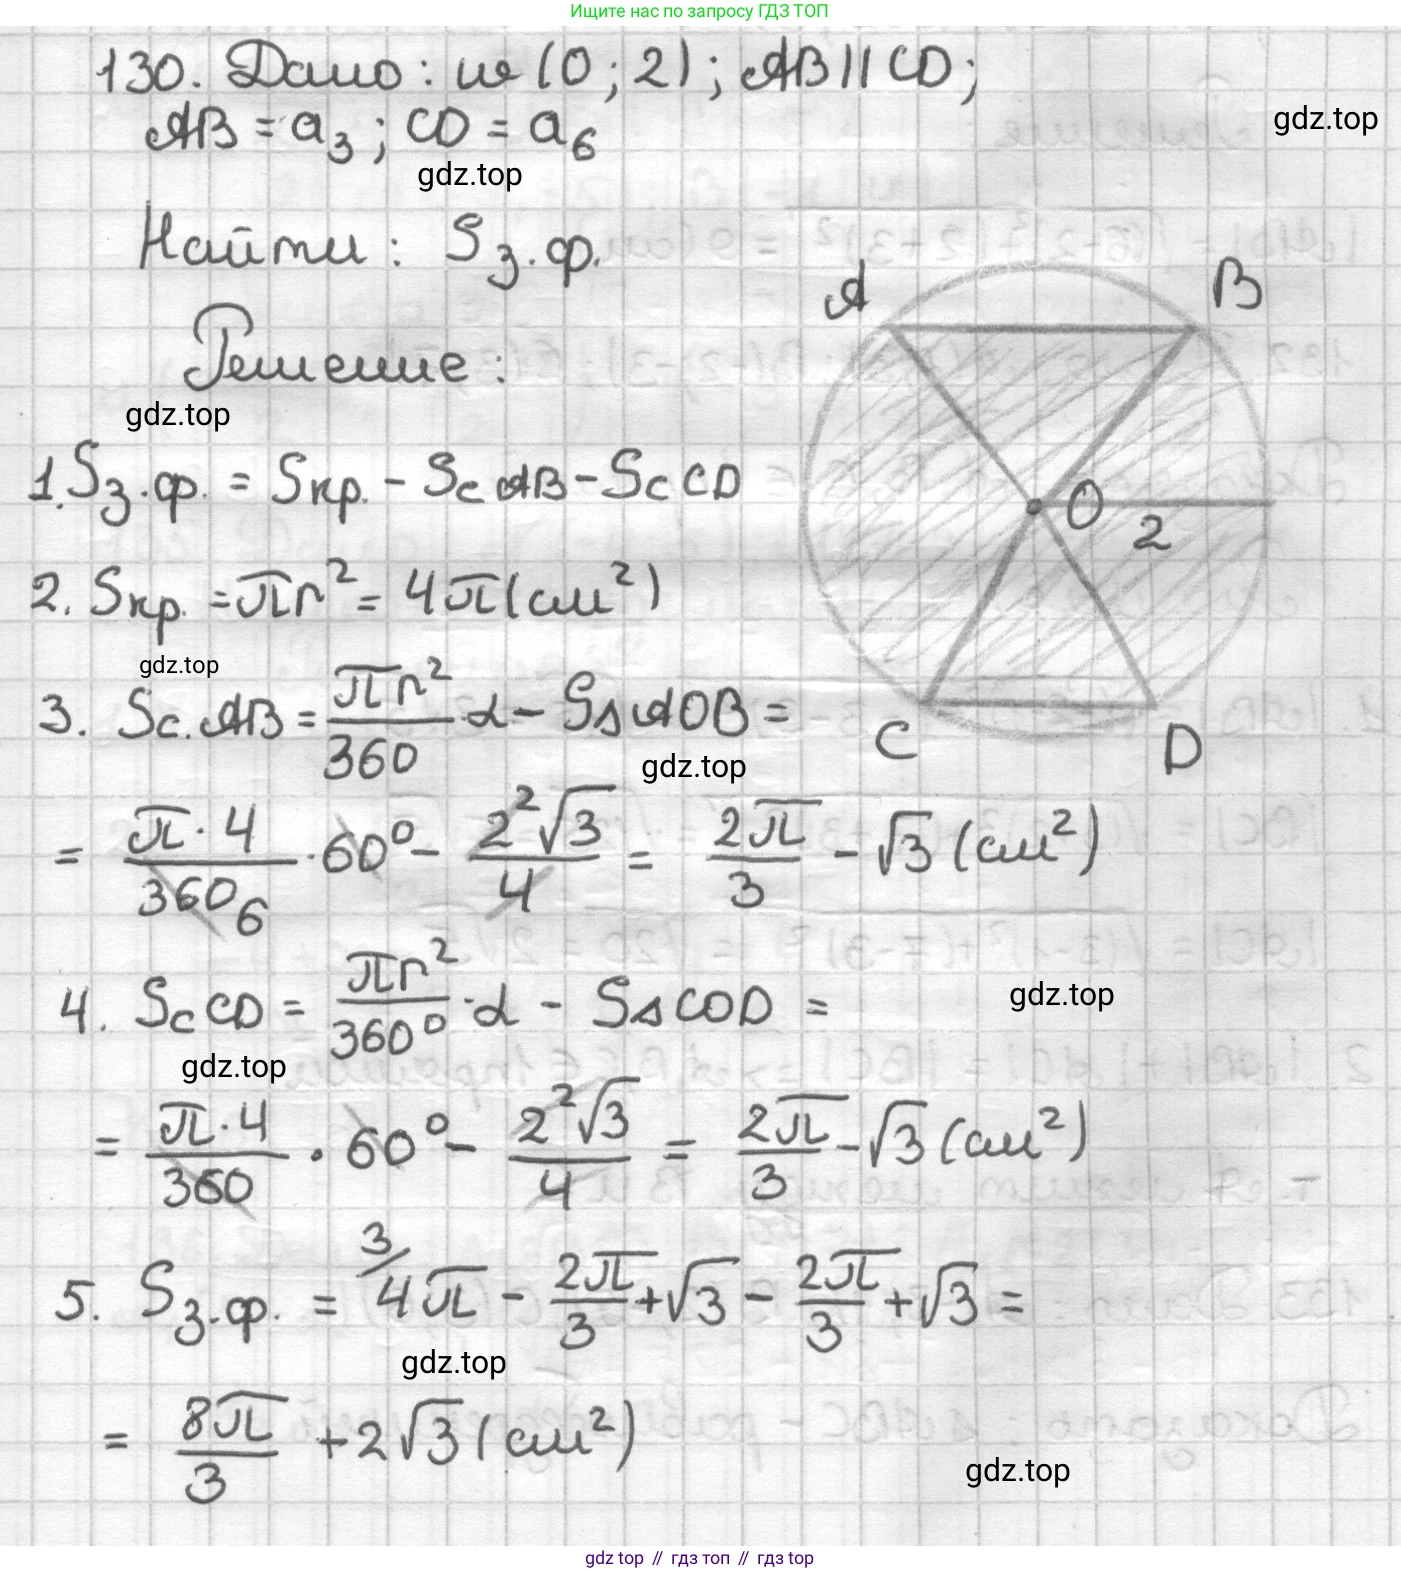 Ищите нас по запросу ГДЗ ТОП
130. Дано: w(O; 2); AB || CD;
AB = a₃; CD = a₆
gdz.top
gdz.top
Найти: Sз.ф.
Решение:
gdz.top
A
B
O
2
C
D
1. Sз.ф. = Sкр. - Sс AB - Sс CD
2. Sкр. = πr² = 4π(см²)
gdz.top
3. Sс. AB = πr²/360 · α - S△AOB =
gdz.top
= π·4/360 6 · 60° - 2²√3/4 = 2π/3 - √3 (см²)
4. Sс CD = πr²/360° · α - S△COD =
gdz.top
gdz.top
= π·4/360 · 60° - 2²√3/4 = 2π/3 - √3 (см²)
5. Sз.ф. = 3/ 4π - 2π/3 + √3 - 2π/3 + √3 =
gdz.top
= 8π/3 + 2√3 (см²)
gdz.top
gdz top // гдз топ // гдз top